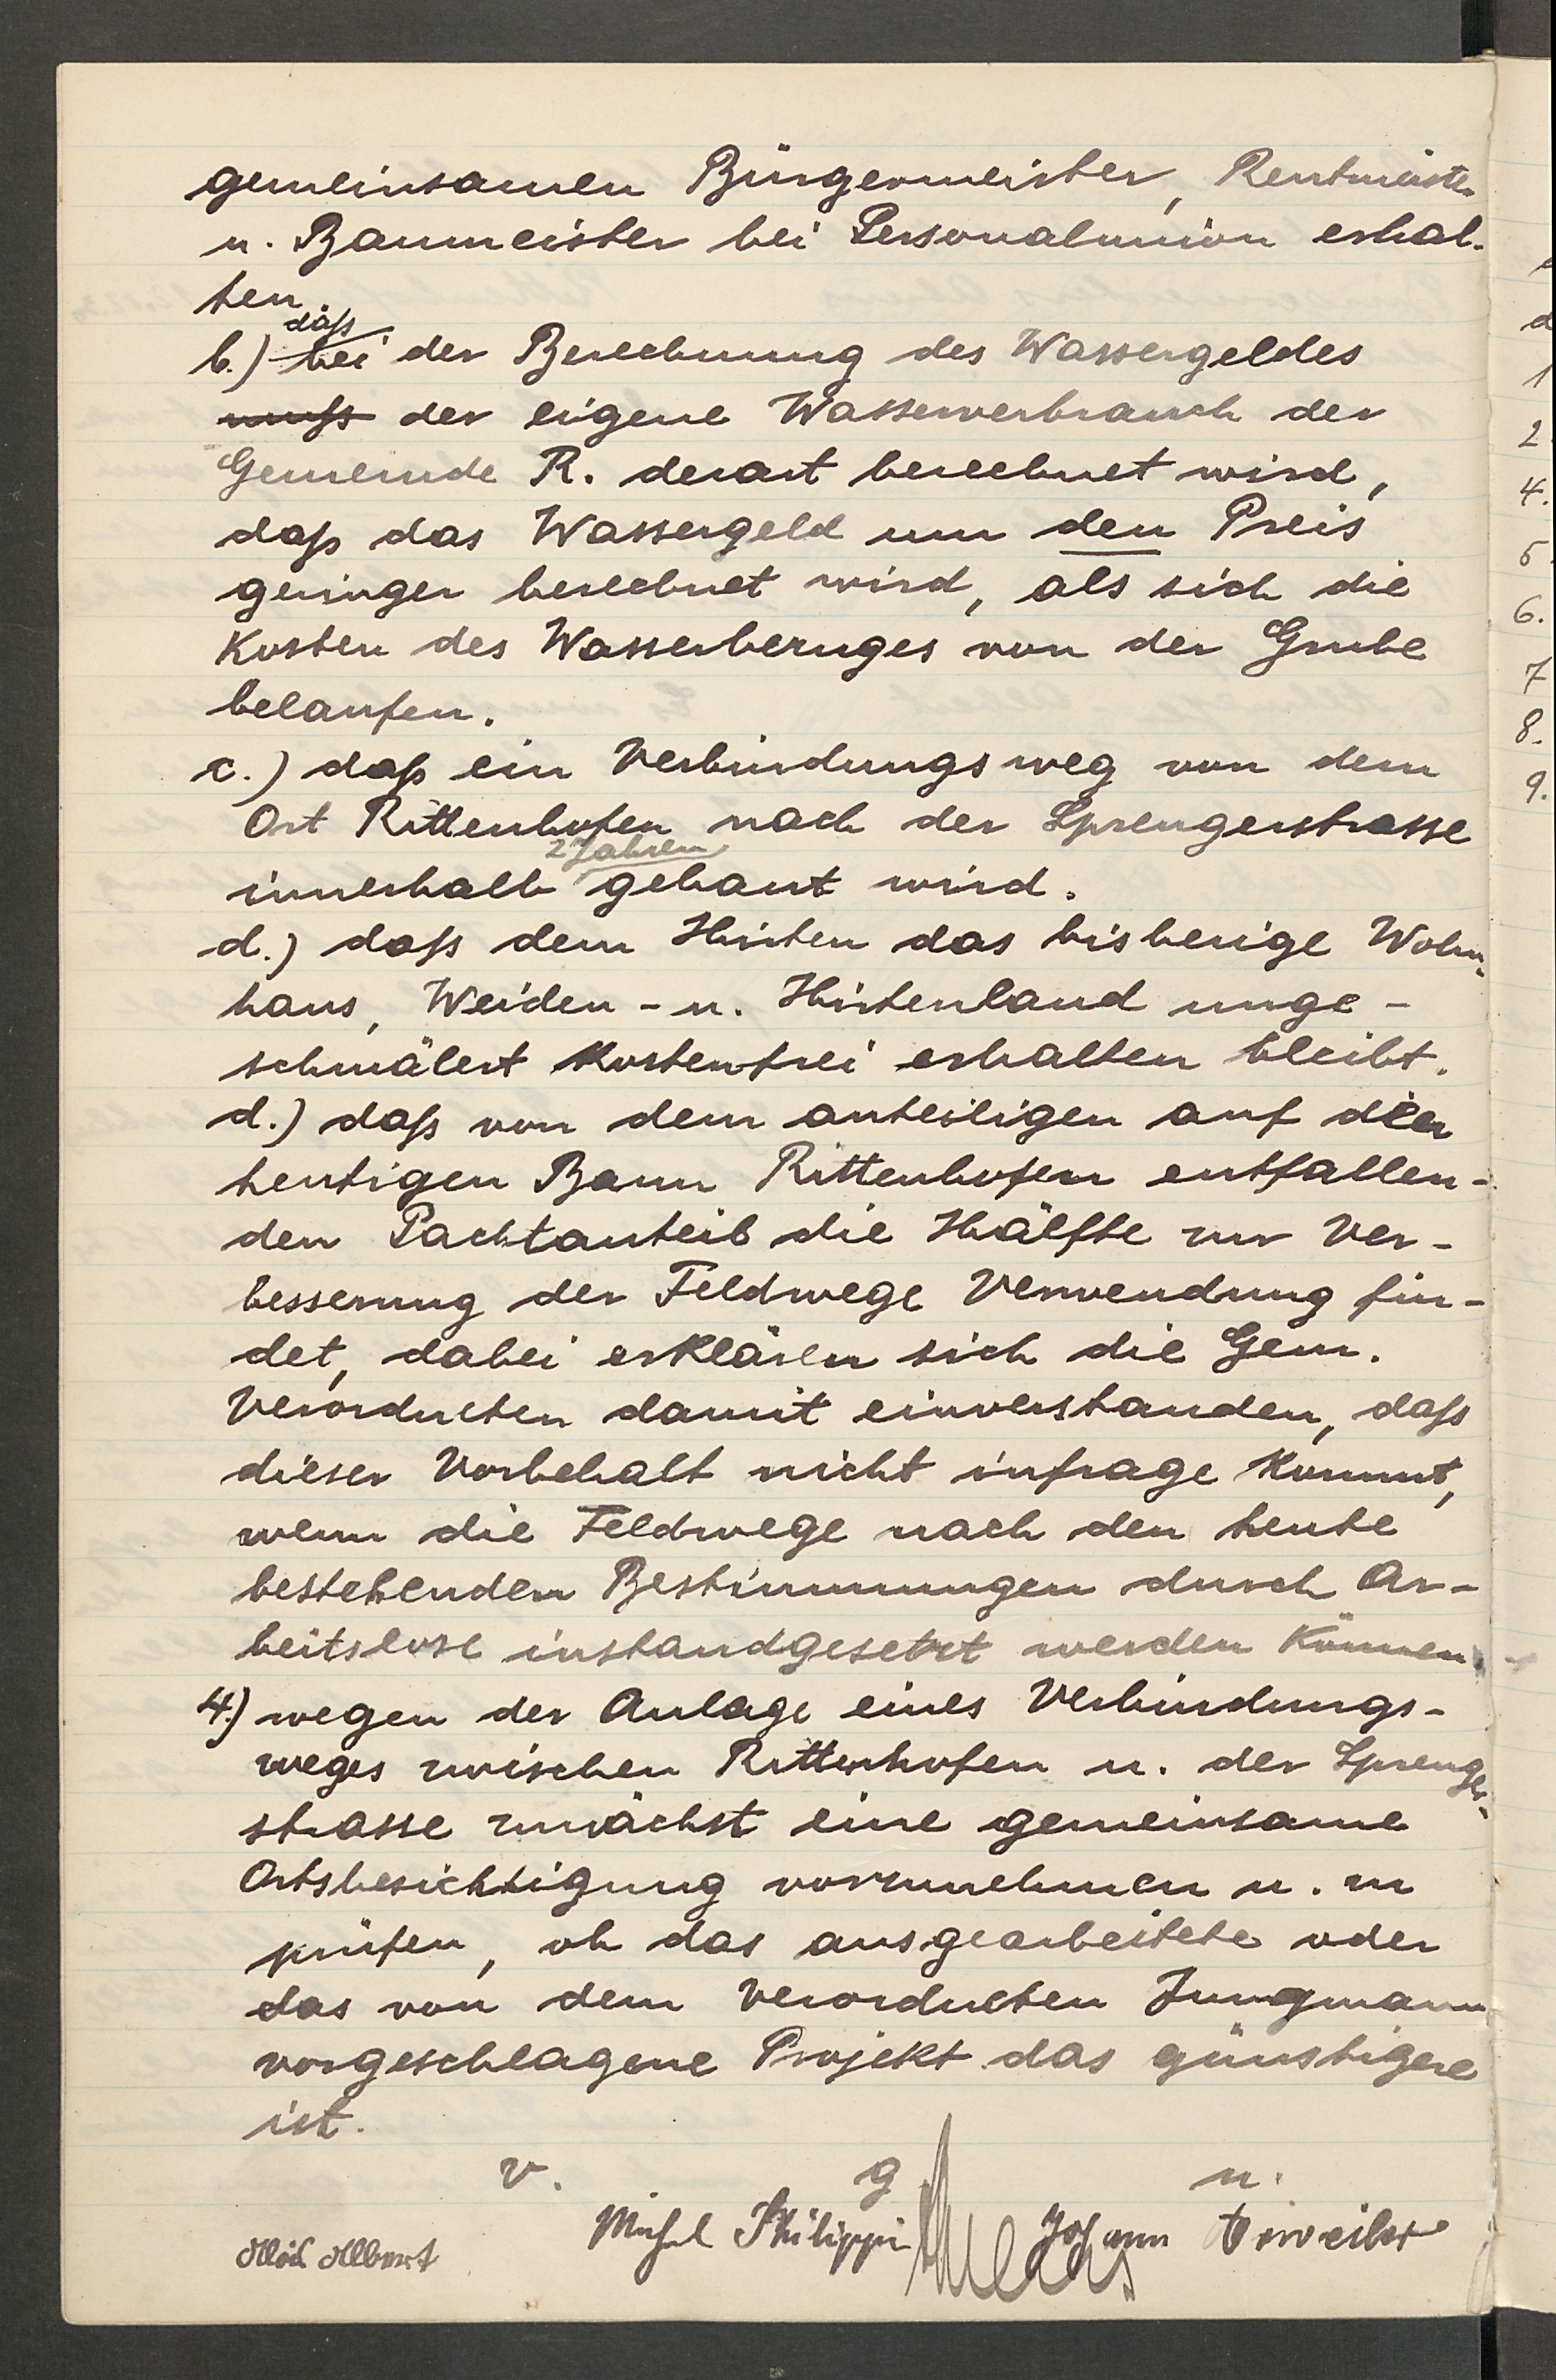 gemeinsamen Bürgermeister, Rentmeister
u. Baumeister bei Personalunion erhal-
ten.
daß
b.) bei der Berechnung des Wassergeldes
muß der eigene Wasserverbrauch der
Gemeinde R. derart berechnet wird,
daß das Wassergeld um den Preis
geringer berechnet wird, als sich die
Kosten des Wasserbezuges von der Grube
belaufen.
c.) daß ein Verbindungsweg von dem
Ort Rittenhofen nach der Sprengerstrasse
2 Jahren
innerhalb gebaut wird.
d.) daß dem Hirten das bisherige Wohn-
haus, Weiden- u. Hirtenland unge-
schmälert kostenfrei erhalten bleibt.
d.) daß von dem anteiligen auf den
heutigen Bann Rittenhofen entfallen-
den Pachtanteil die Hälfte zur Ver-
besserung der Feldwege Verwendung fin-
det, dabei erklären sich die Gem.
Verordneten damit einverstanden, daß
dieser Vorbehalt nicht infrage kommt,
wenn die Feldwege nach den heute
bestehenden Bestimmungen durch Ar-
beitslose instandgesetzt werden können.
4.) wegen der Anlage eines Verbindungs-
weges zwischen Rittenhofen u. der Sprenger-
strasse zunächst eine gemeinsame
Ortsbesichtigung vorzunehmen u. zu
prüfen, ob das ausgearbeitete oder
das von dem Verordneten Jungmann
vorgeschlagene Projekt das günstigere
ist.
v. g u.
Albert Michel Philippi Johann
d
1
2
4.
5
6.
7
8.
9.